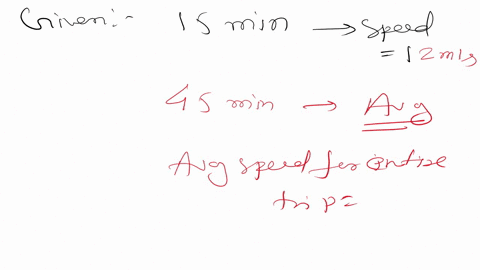 Given:- 15 min → Speed
= 12 m/s
45 min → Avg
Avg speed for entire
trip=